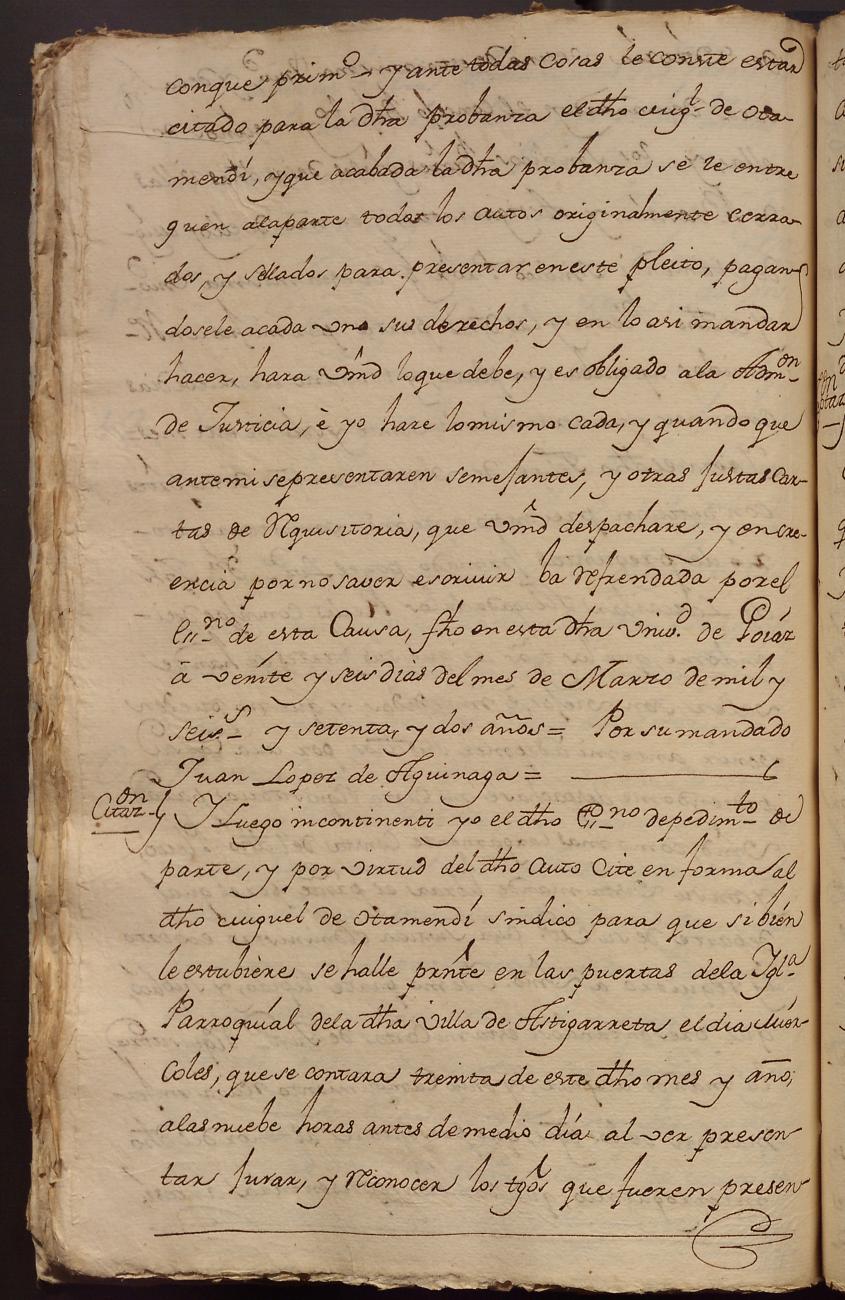 conque prim.º y ante todas cosas le conste estar
citado para la dha probanza el dho Mig.l de Ota-
mendí, y que acabada la dha probanza se le entre
guen a la parte todos los autos originalmente cerra-
dos, y sellados para presentar en este pleito, pagan-
dosele a cada uno sus derechos, y en lo asi mandar
hacer, hara Vmd lo que debe, y es obligado a la Adm.on
de Justicia, è yo hare lo mismo cada, y quando que
ante mi se presentaren semejantes, y otras justas Car-
tas de Requisitoria, que Vmd despachare, y en cre-
encia por no saver escrivir ba refrendada por el
Es.no de esta Causa, fho en esta dha Univ.d de
à veinte y seis dias del mes de Marzo de mil y
seis.s y setenta, y dos años = Por su mandado
Juan Lopez de Aguinaga =
Citaz.on Y Luego incontinenti yo el dho Es.no de pedim.to de
parte, y por virtud del dho Auto Cite en forma al
dho Miguel de Otamendí sindico para que si bién
le estubière se halle prnte en las puertas de la Ygl.a
Parroquíal de la dha Villa de Astigarreta el dia Miér-
coles, que se contara treinta de este dho mes y año,
a las nuebe horas antes de medio día al ver presen-
tar jurar, y Reconocer los tgos que fueren presen-